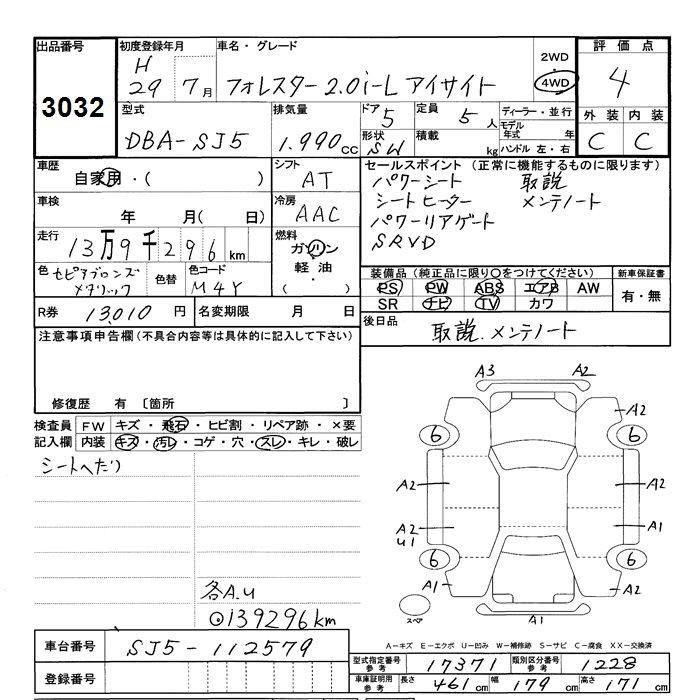 出品番号
3032
初度登録年月
H
29 7月
車名・グレード
フォレスター 2.0i-L アイサイト
2WD
4WD
評価点
4
外装 内装
C C
型式
DBA-SJ5
排気量
1.990cc
ドア
5
定員
5人
形状
SW
積載
kg
ディーラー・並行
モデル年式 年
ハンドル 左・右
車歴
自家用・( )
シフト
AT
車検
年 月( 日)
冷房
AAC
走行
13万9千296km
燃料
ガソリン
・
軽油
( )
色
セピアブロンズ
メタリック
色替
色コード
M4Y
R券
13,010円
名変期限
月 日
セールスポイント(正常に機能するものに限ります)
パワーシート 取説
シートヒーター メンテノート
パワーリアゲート
SRVD
装備品(純正品に限り〇をつけてください)
PS PW ABS エアB AW
SR ナビ TV カワ
新車保証書
有・無
後日品
取説.メンテノート
注意事項申告欄(不具合内容等は具体的に記入して下さい)
修復歴 有〔箇所 〕
検査員記入欄
FW キズ・飛石・ヒビ割・リペア跡・×要
内装 キズ・汚レ・コゲ・穴・スレ・キレ・破レ
シートへたり
各A.U
⊙139296km
A3 A2
A2
6 6
A2 A2
A2
U1
A1
6 6
A1 A2
スペア
A1
A-キズ E-エクボ U-凹み W-補修跡 S-サビ C-腐食 XX-交換済
車台番号
SJ5-112579
登録番号
型式指定番号 参考
17371
類別区分番号 参考
1228
車庫証明用 参考
長さ 461cm 幅 179cm 高さ 171cm